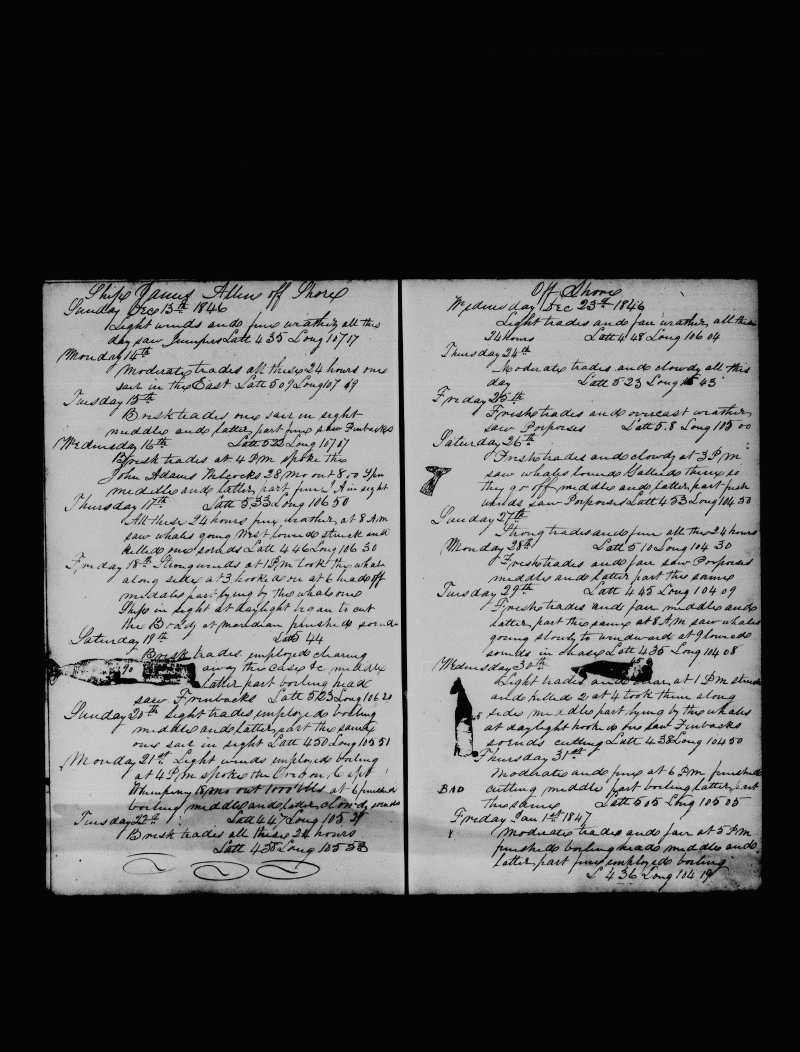 Ship James Allen off Shore
Sunday Dec 13th 1846
Light winds and fine weather all this
day saw Jumpers Latt 4 35 Long 107 17
Monday 14th
Moderate trades all these 24 hours one
sail in the East Latt 5 09 Long 107 19
Tuesday 15th
Brisk trades one sail in sight
middle and latter part fine saw Finbacks
Wednesday 16th Latt 5 22 Long 107 07
Brisk trades at 4 P.M. spoke the
John Adams 28 mo out 800 Spm
middle and latter part fine in sight
Thursday 17th Latt 5 33 Long 106 50
All these 24 hours fine weather, at 8 A.M
saw whales going West lowered struck and
killed one sounds Latt 4 46 Long 106 30
Friday 18th Strong winds at 1 P.M took the whale
along side at 3 hooked on at 6 head off
middle part lying by the whale one
Ship in sight at daylight began to cut
the Body at meridian finished
Saturday 19th Latt 5 44
Brisk trades employed clearing
90 away the case &c middle
latter part boiling head
saw Finnbacks Latt 5 23 Long 106 20
Sunday 20th Light trades employed boiling
middle and latter part the same
one sail in sight Latt 4 50 Long 105 51
Monday 21st Light winds employed boiling
at 4 P.M. spoke the Oregon, Capt
18 mo out 1000 bbls at 6 finished
boiling middle and latter cloudy
Tuesday 22d Latt 4 47 Long 105 29
Brisk trades all these 24 hours
Latt 4 38 Long 105 53
Off Shore
Wednesday Dec 23d 1846
Light trades and fair weather, all these
24 hours Latt 4 48 Long 106 04
Thursday 24th
Moderate trades and clowdy all this
day Latt 5 23 Long 43
Friday 25th
Fresh trades and overcast weather
saw Porpoises Latt 5.8 Long 105 00
Saturday 26th
Fresh trades and clowdy at 3 P.M
saw whales lowered Gallied them so
they go off middle and latter part fresh
winds saw Porpoises Latt 4 53 Long 104 50
Sunday 27th
Strong trades and fine all this 24 hours
Monday 28th Latt 5 10 Long 104 30
Fresh trades and fair saw Porpoises
middle and latter part the same
Tuesday 29th Latt 4 45 Long 104 09
Fresh trades and fair middle and
latter part the same at 8 A.M. saw whales
going slowly to windward at 9 lowered
sounds in chase Latt 4 35 Long 104 08
Wednesday 30th
Light trades and clear, at 1 P.M struck
and killed 2 at 4 took them along
side middle part lying by the whales
at daylight hooked on saw Finbacks
sounds cutting Latt 4 38 Long 104 50
Thursday 31st
Moderate and fine at 6 P.M. finished
BAD cutting middle part boiling latter part
the same Latt 5 05 Long 105 05
Friday Jan 1st 1847
Moderate trades and fair at 5 P.M
finished boiling heads middle and
latter part fine employed boiling
L 4 36 Long 104 19